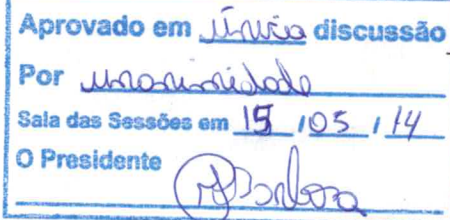 Aprovado em única discussão
Por unanimidade
Sala das Sessões em 15 / 05 / 14
O Presidente
Barbosa